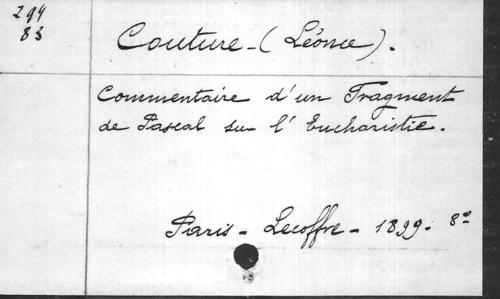 294
83
Couture - (Léonce).
Commentaire d'un Fragment
de Pascal sur l'Eucharistie.
Paris - Lecoffre - 1899. 8º